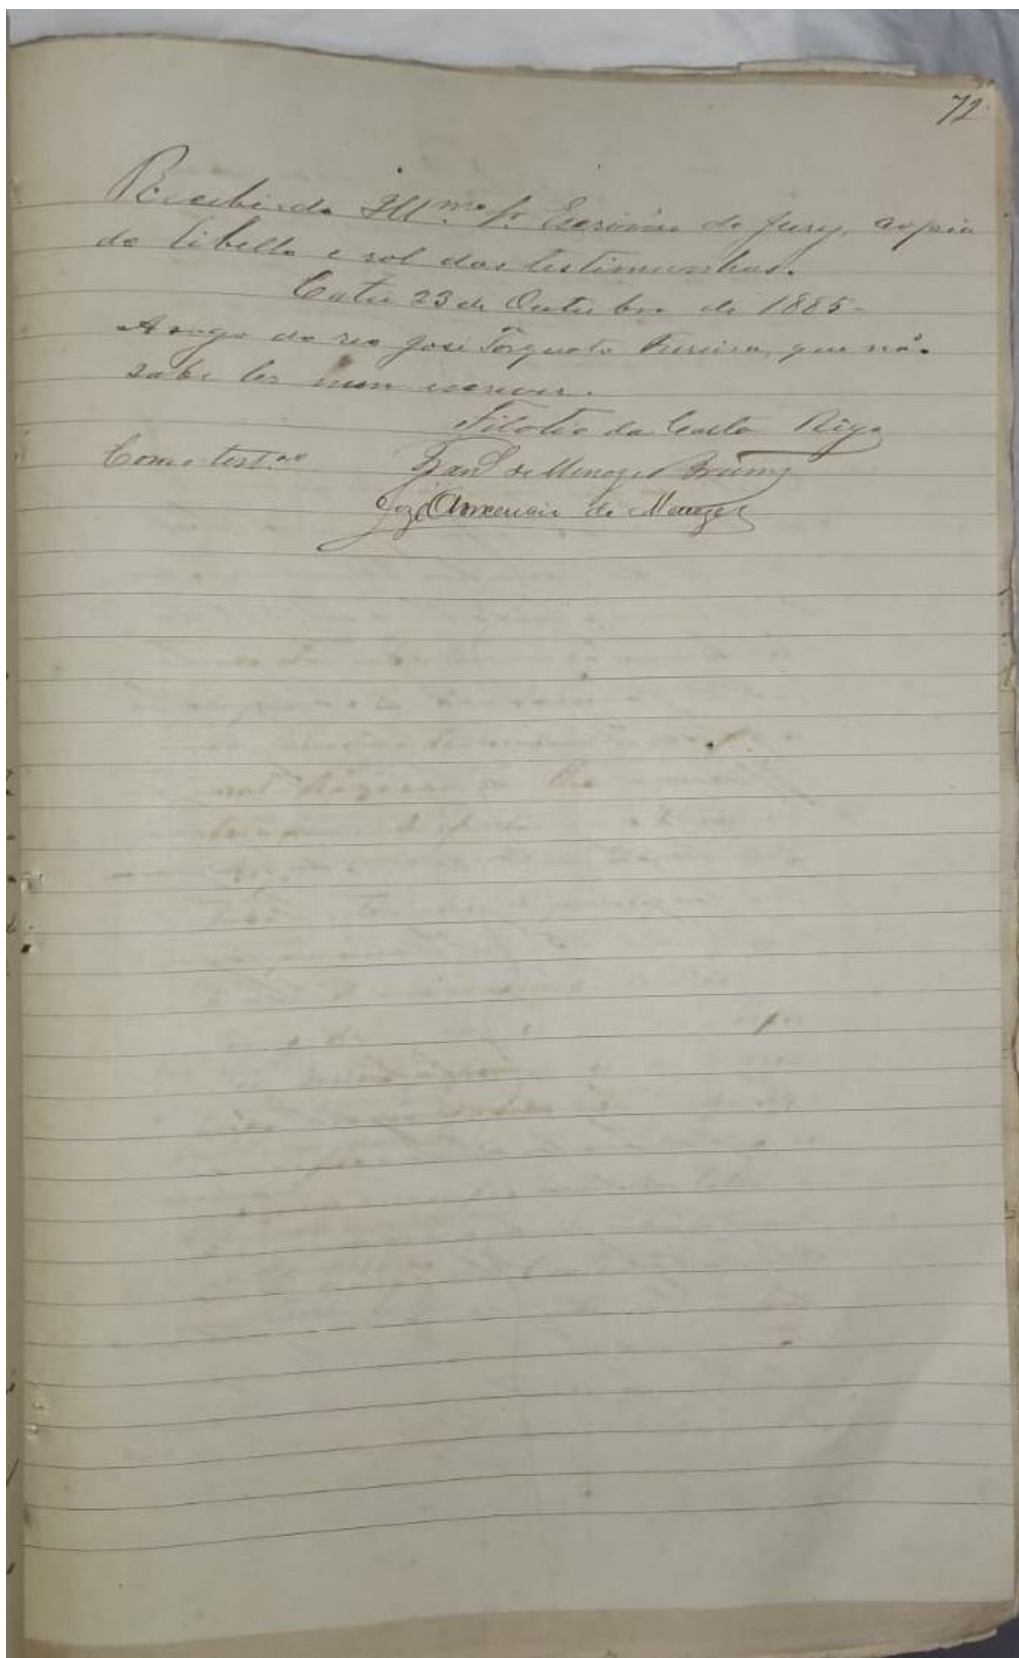 72
Recebi do Ill.mo Sr. Escrivão do Jury, copia
do libello e rol das testimunhas.
Catú 23 de Outubro de 1885
A rogo do reo José Torquato Ferreira, que não
sabe ler nem escrever.
Filotio da Costa Rêgo
Como test.as Franc.º de Menezes
José de Menezes